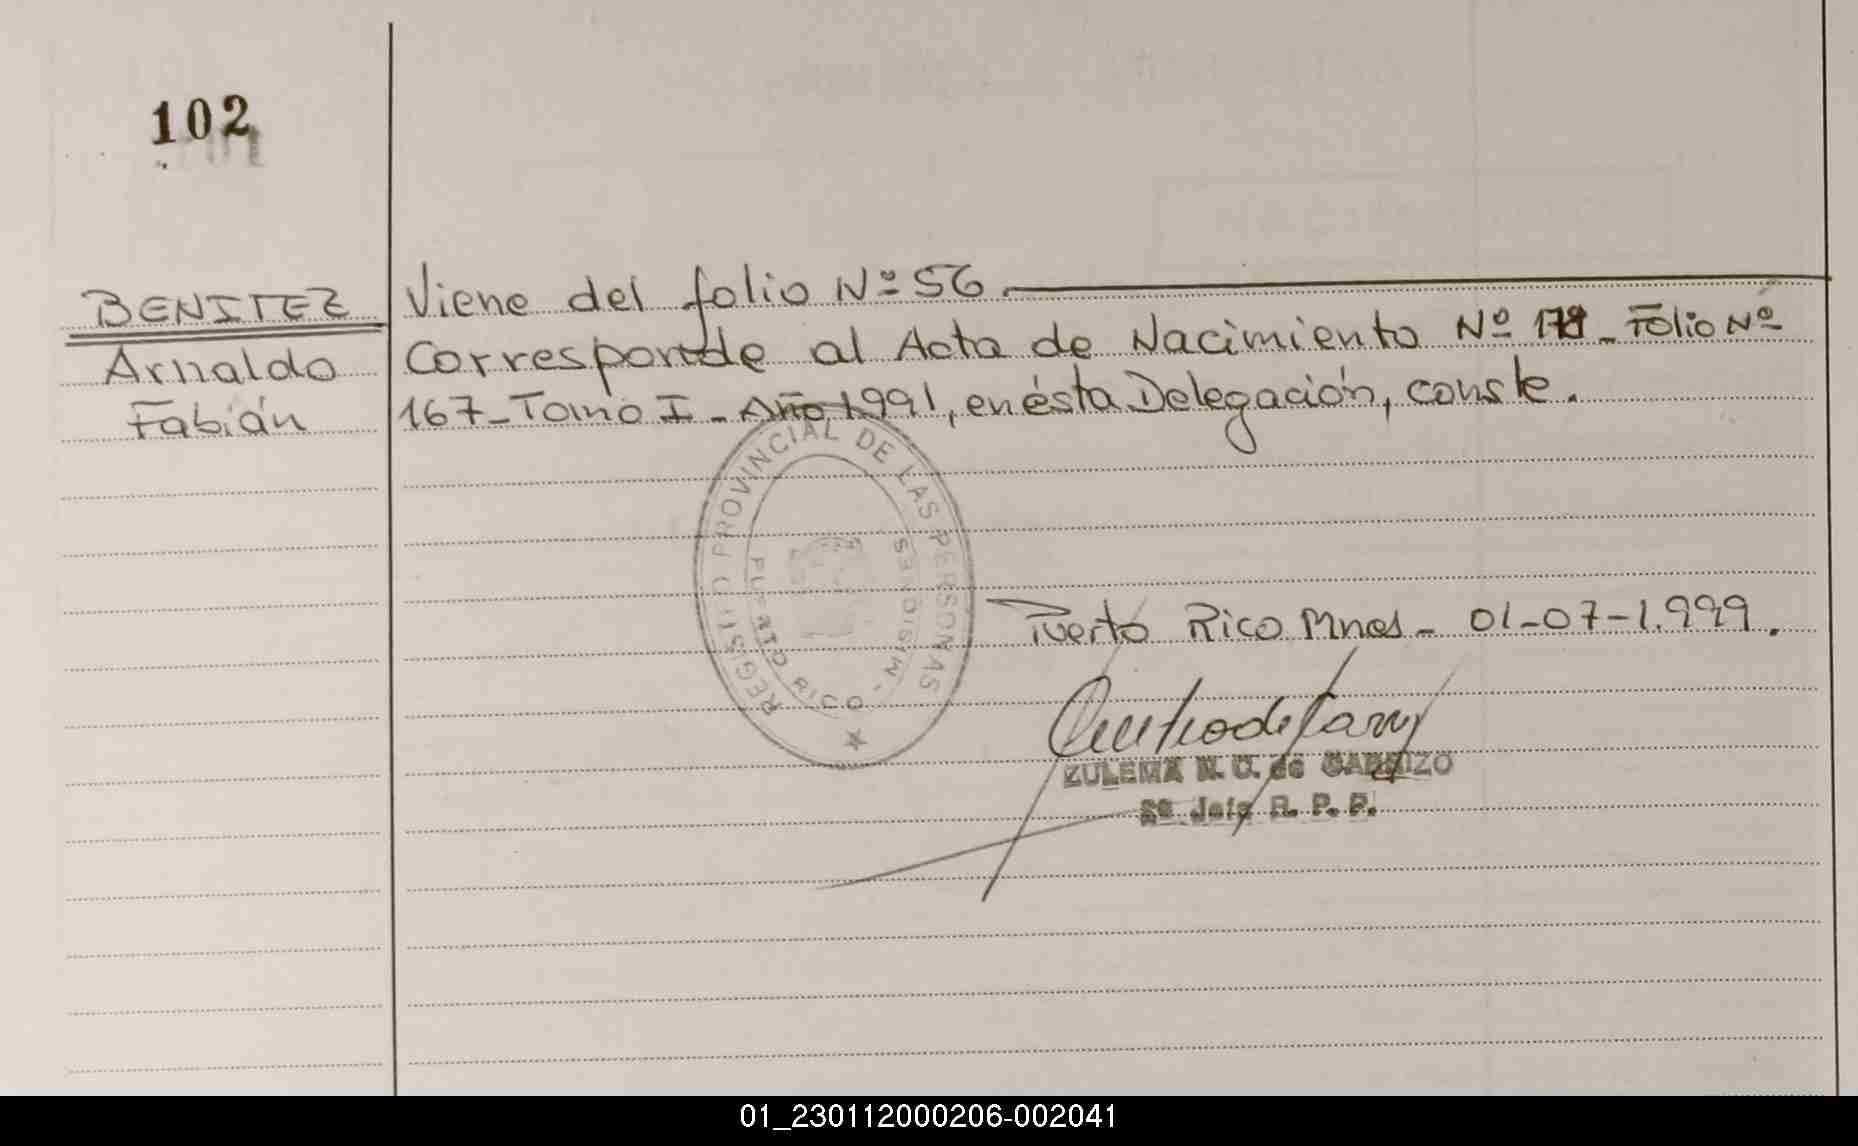 102
BENITEZ
Arnaldo
Fabián
Viene del folio Nº 56
Corresponde al Acta de Nacimiento Nº Folio Nº
167_ Tomo I _ Año 1991, en ésta Delegación, conste.
REGISTRO PROVINCIAL DE LAS PERSONAS
PUERTO RICO - MISIONES
Puerto Rico Mnes_ 01-07-1.999.
ZULEMA N. C. de CARRIZO
Sª Jefe R. P. P.
01_230112000206-002041